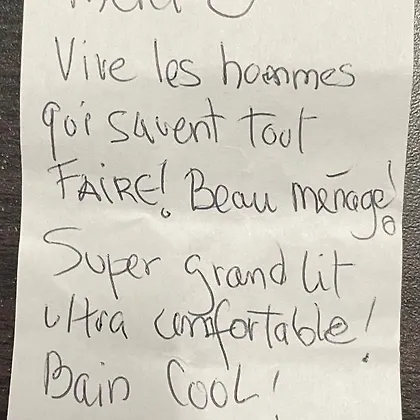 Vive les hommes
qui savent tout
FAIRE! Beau ménage!
Super grand lit
ultra comfortable!
Bain COOL!